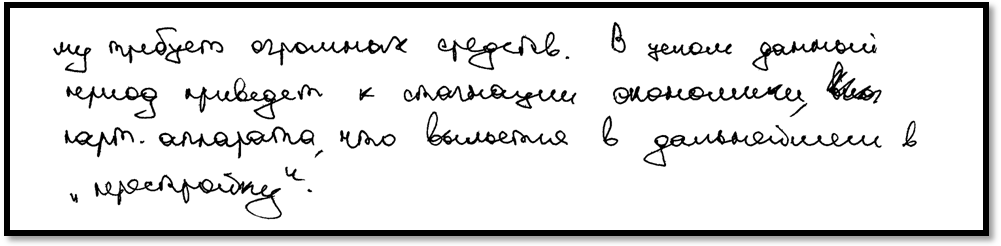 му требует огромных средств. В целом данный
период приведет к стагнации экономики,
парт. аппарата, что выльется в дальнейшем в
„перестройку“.